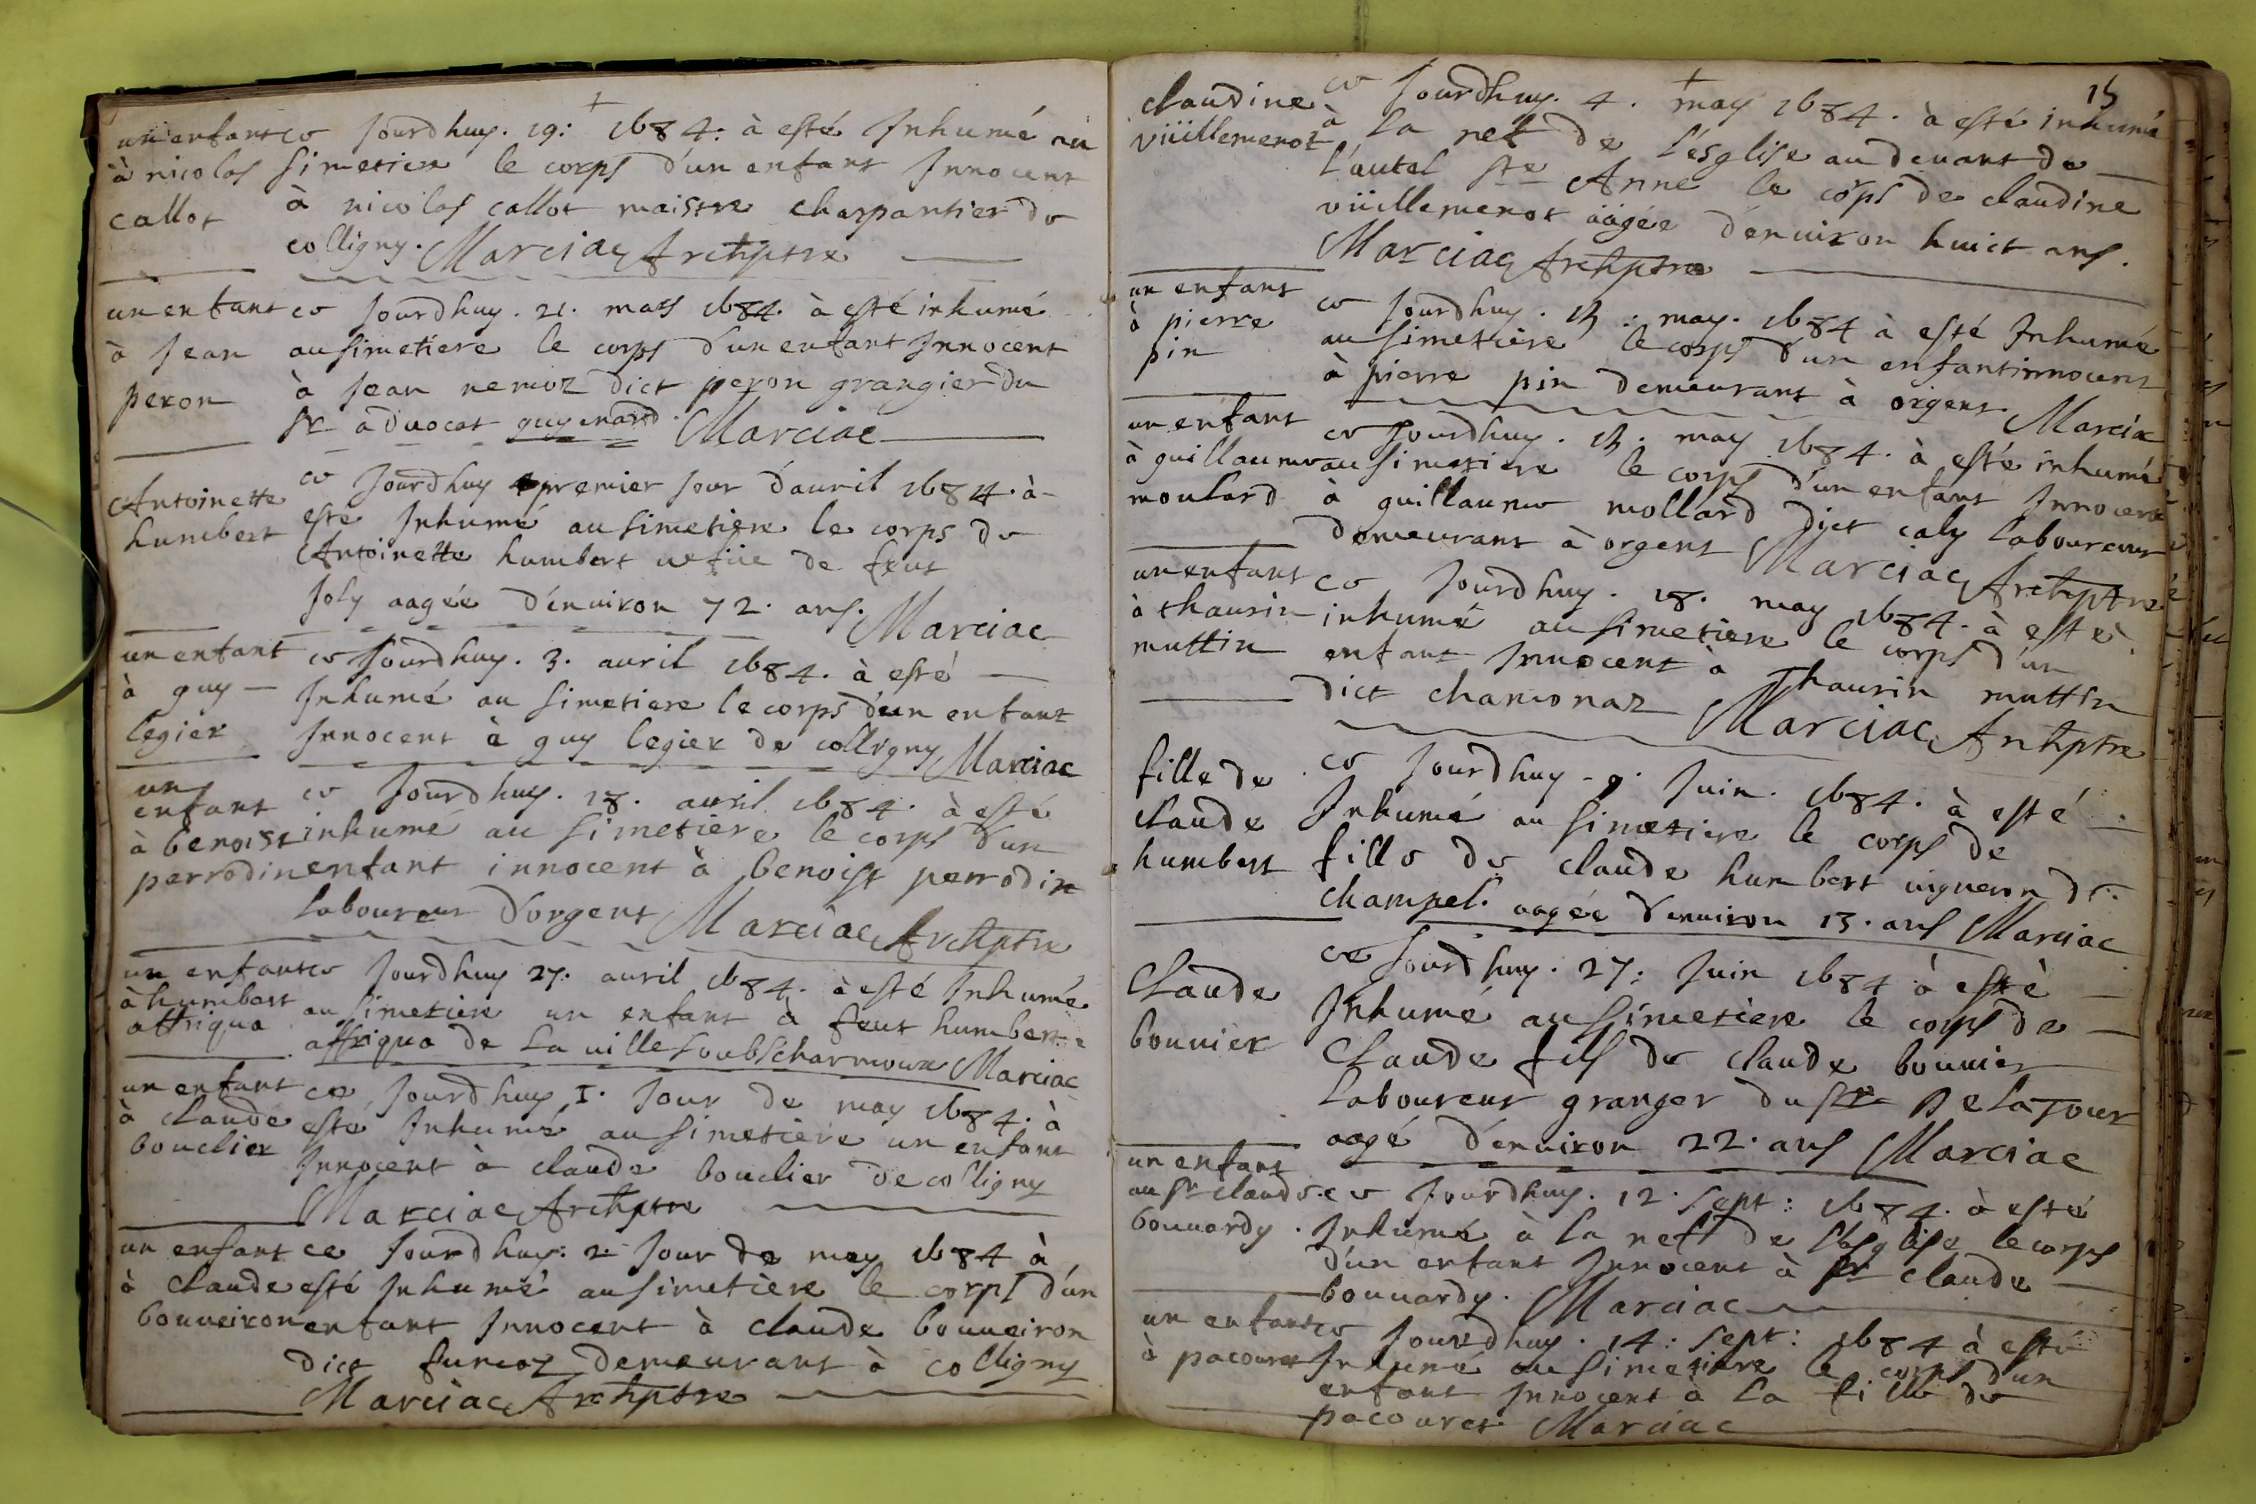 un enfant
à nicolas
callot
ce Jourdhuy. 19: 1684: à esté Inhumé au
simetiere le corps d'un enfant Innocent
à nicolas callot maistre charpantier de
colligny. Marciac Archptre
un enfant
à Jean
peron
ce Jourdhuy. 21. mars 1684. à esté inhumé
au simetiere le corps d'un enfant Innocent
à Jean nemoz dict peron grangier du
Sr advocat guyenard. Marciac
Antoinette
humbert
ce Jourdhuy premier Jour d'auril 1684. à
esté Inhumé au simetiere le corps de
Antoinette humbert uefue de feut
Joly aagée d'enuiron 72. ans. Marciac
un enfant
à guy
legier
ce Jourdhuy. 3. auril 1684. à esté
Inhumé au simetiere le corps d'un enfant
Innocent à guy legier de colligny Marciac
un
enfant
à benoist
perrodin
ce Jourdhuy. 18. auril 1684. à esté
inhumé au simetiere le corps d'un
enfant innocent à benoist perrodin
laboureur d'orgent Marciac Archptre
un enfant
à humbert
affriqua
ce Jourdhuy 27. auril 1684. à esté Inhumé
au simetiere un enfant à feut humbert
affriqua de la uille soubs charmoux Marciac
un enfant
à claude
bouclier
ce Jourdhuy 1. Jour de may 1684. à
esté Inhumé au simetiere un enfant
Innocent à claude bouclier de colligny
Marciac Archptre
un enfant
à claude
bouueiron
ce Jourdhuy: 2 Jour de may 1684 à
esté Inhumé au simetiere le corps d'un
enfant Innocent à claude bouueiron
dict demeurant à colligny
Marciac Archptre
15
claudine
vüillemenot
ce Jourdhuy. 4. may 1684. à esté inhumé
à la nef de l'esglise au deuant de
l'autel Ste Anne le corps de claudine
vüillemenot aagée d'enuiron huict ans.
Marciac Archptre
un enfant
à pierre
pin
ce Jourdhuy. 15: may. 1684 à esté Inhumé
au simetiere le corps d'un enfant innocent
à pierre pin demeurant à orgent. Marciac
un enfant
à guillaume
moulard
ce Jourdhuy. 15. may 1684. à esté inhumé
au simetiere le corps d'un enfant Innocent
à guillaume mollard dict caly laboureur
demeurant à orgent Marciac Archptre
un enfant
à thaurin
muttin
ce Jourdhuy. 18. may 1684. à esté
inhumé au simetiere le corps d'un
enfant Innocent à Thaurin muttin
dict chamonaz Marciac Archptre
fille de
claude
humbert
ce Jourdhuy. 9. Juin. 1684. à esté
Inhumé au simetiere le corps de
fille de claude humbert uigneron de
champel. aagée d'enuiron 13. ans Marciac
Claude
bouuier
ce Jourdhuy. 27: Juin 1684 à esté
Inhumé au simetiere le corps de
Claude fils de claude bouuier
laboureur granger du Sr Delatour
aagé d'enuiron 22. ans Marciac
un enfant
au Sr claude
bouuardy.
ce Jourdhuy. 12. sept: 1684. à esté
Inhumé à la neff de l'esglise le corps
d'un enfant Innocent à Sr claude
bouuardy. Marciac
un enfant
à pacouret
ce Jourdhuy. 14: sept: 1684 à esté
Inhumé au simetiere le corps d'un
enfant Innocent à la fille de
pacouret Marciac